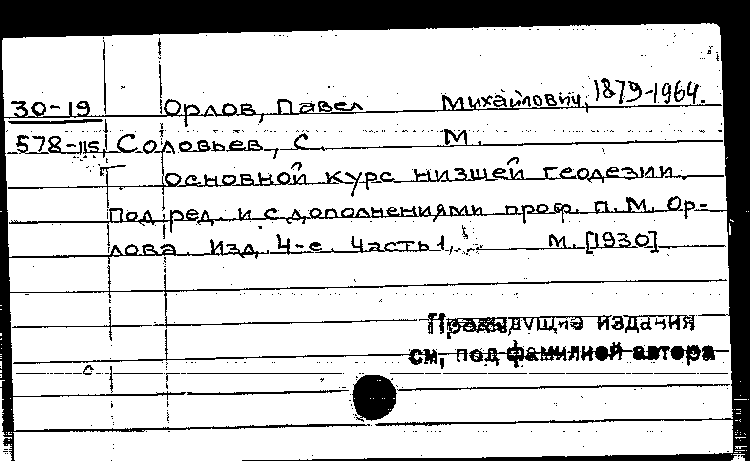 30-19 Орлов, Павел Михайлович, 1879-1964.
578-115 Соловьев, С. М.
Основной курс низшей геодезии.
Под ред. и с дополнениями проф. П. М. Ор-
лова. Изд. 4-е. Часть 1, М. [1930]
Предыдущие издания
см. под фамилией автора